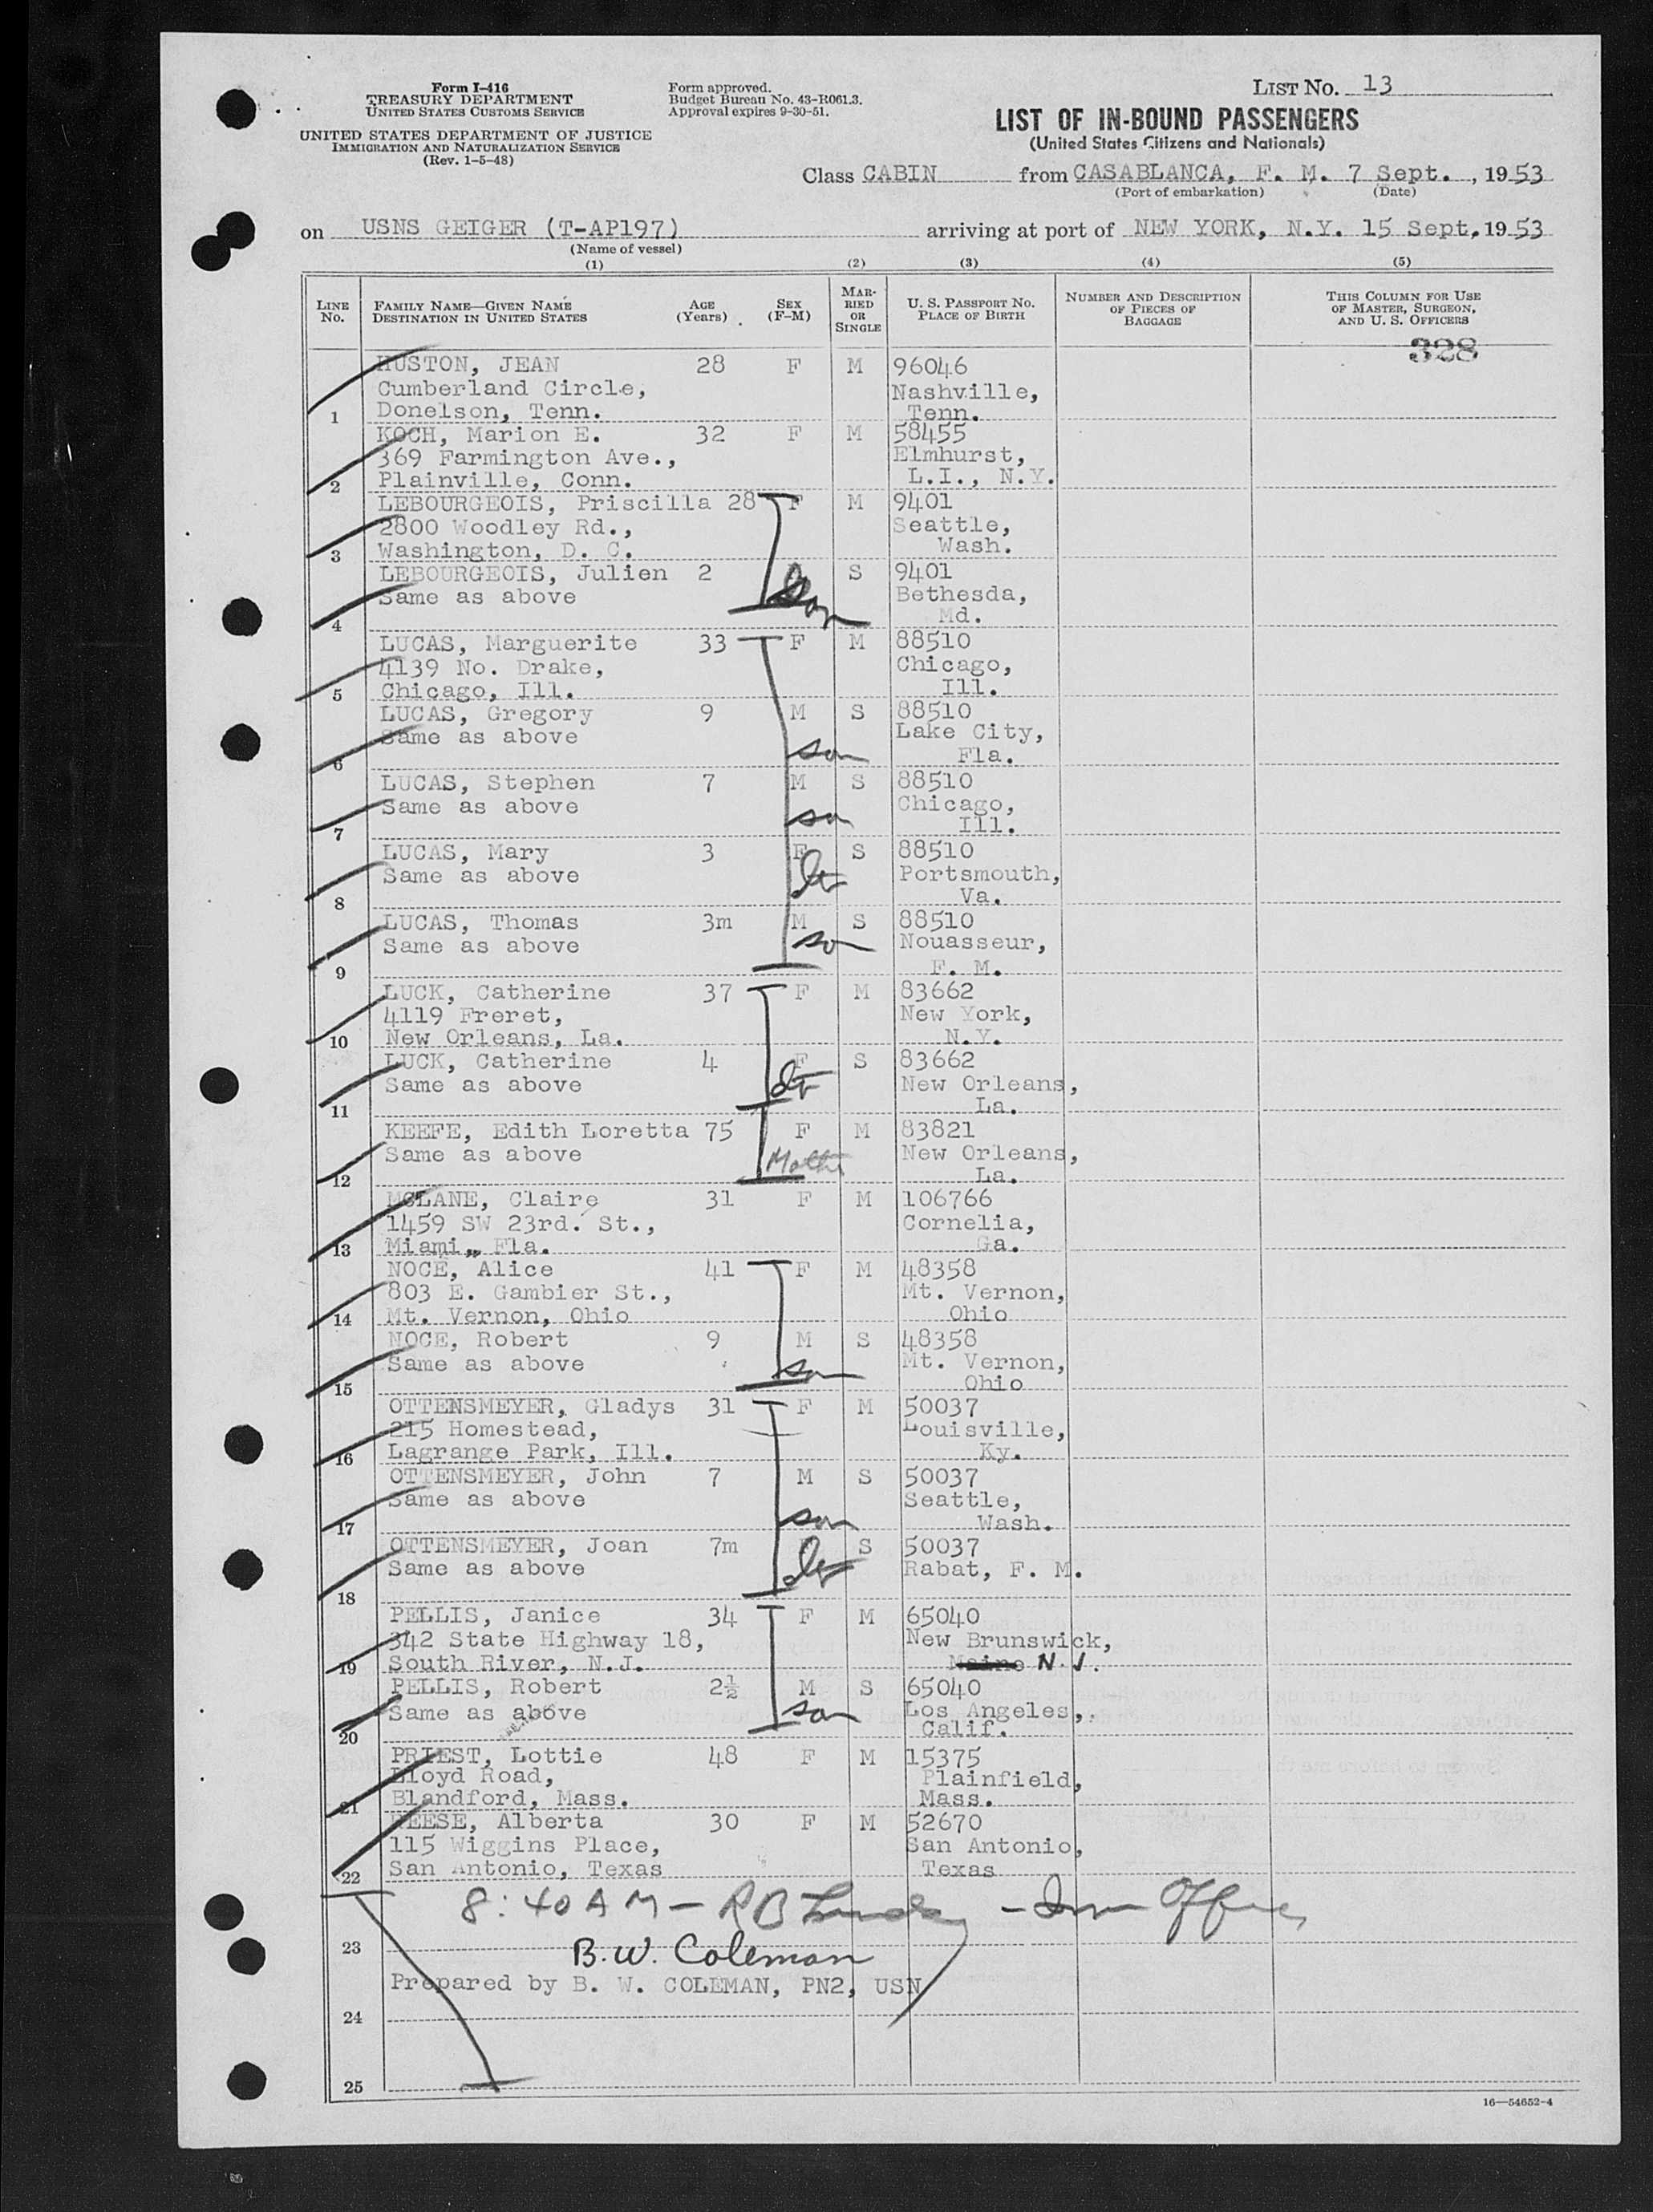 Form I-416
TREASURY DEPARTMENT
UNITED STATES CUSTOMS SERVICE
UNITED STATES DEPARTMENT OF JUSTICE
IMMIGRATION AND NATURALIZATION SERVICE
(Rev. 1-5-48)
Form approved.
Budget Bureau No. 43-R061.3.
Approval expires 9-30-51.
LIST No. 13
LIST OF IN-BOUND PASSENGERS
(United States Citizens and Nationals)
Class CABIN from CASABLANCA, F. M. 7 Sept. , 1953
(Port of embarkation) (Date)
on USNS GEIGER (T-AP197) arriving at port of NEW YORK, N.Y. 15 Sept. 1953
(Name of vessel)
(1) (2) (3) (4) (5)
LINE No. FAMILY NAME—GIVEN NAME DESTINATION IN UNITED STATES AGE (Years) SEX (F-M) MARRIED OR SINGLE U. S. PASSPORT No. PLACE OF BIRTH NUMBER AND DESCRIPTION OF PIECES OF BAGGAGE THIS COLUMN FOR USE OF MASTER, SURGEON, AND U. S. OFFICERS
328
HUSTON, JEAN 28 F M 96046
Cumberland Circle, Nashville,
1 Donelson, Tenn. Tenn.
KOCH, Marion E. 32 F M 58455
369 Farmington Ave., Elmhurst,
2 Plainville, Conn. L.I., N.Y.
LEBOURGEOIS, Priscilla 28 F M 9401
2800 Woodley Rd., Seattle,
3 Washington, D. C. Wash.
LEBOURGEOIS, Julien 2 son S 9401
Same as above Bethesda,
4 Md.
LUCAS, Marguerite 33 F M 88510
4139 No. Drake, Chicago,
5 Chicago, Ill. Ill.
LUCAS, Gregory 9 M S 88510
Same as above Lake City,
6 son Fla.
LUCAS, Stephen 7 M S 88510
Same as above Chicago,
7 son Ill.
LUCAS, Mary 3 F S 88510
Same as above Portsmouth,
8 Va.
LUCAS, Thomas 3m M S 88510
Same as above son Nouasseur,
9 F. M.
LUCK, Catherine 37 F M 83662
4119 Freret, New York,
10 New Orleans, La. N.Y.
LUCK, Catherine 4 F S 83662
Same as above New Orleans,
11 La.
KEEFE, Edith Loretta 75 F M 83821
Same as above New Orleans,
12 La.
MCLANE, Claire 31 F M 106766
1459 SW 23rd. St., Cornelia,
13 Miami, Fla. Ga.
NOCE, Alice 41 F M 48358
803 E. Gambier St., Mt. Vernon,
14 Mt. Vernon, Ohio Ohio
NOCE, Robert 9 M S 48358
Same as above son Mt. Vernon,
15 Ohio
OTTENSMEYER, Gladys 31 F M 50037
215 Homestead, Louisville,
16 Lagrange Park, Ill. Ky.
OTTENSMEYER, John 7 M S 50037
Same as above Seattle,
17 son Wash.
OTTENSMEYER, Joan 7m S 50037
Same as above Rabat, F. M.
18
PELLIS, Janice 34 F M 65040
342 State Highway 18, New Brunswick,
19 South River, N.J. Maine N.J.
PELLIS, Robert 2½ M S 65040
Same as above son Los Angeles,
20 Calif.
PRIEST, Lottie 48 F M 15375
Lloyd Road, Plainfield,
21 Blandford, Mass. Mass.
REESE, Alberta 30 F M 52670
115 Wiggins Place, San Antonio,
22 San Antonio, Texas Texas
8:40 AM - RB - Imm Officer
23 B.W. Coleman
Prepared by B. W. COLEMAN, PN2, USN
24
25
16—54652-4